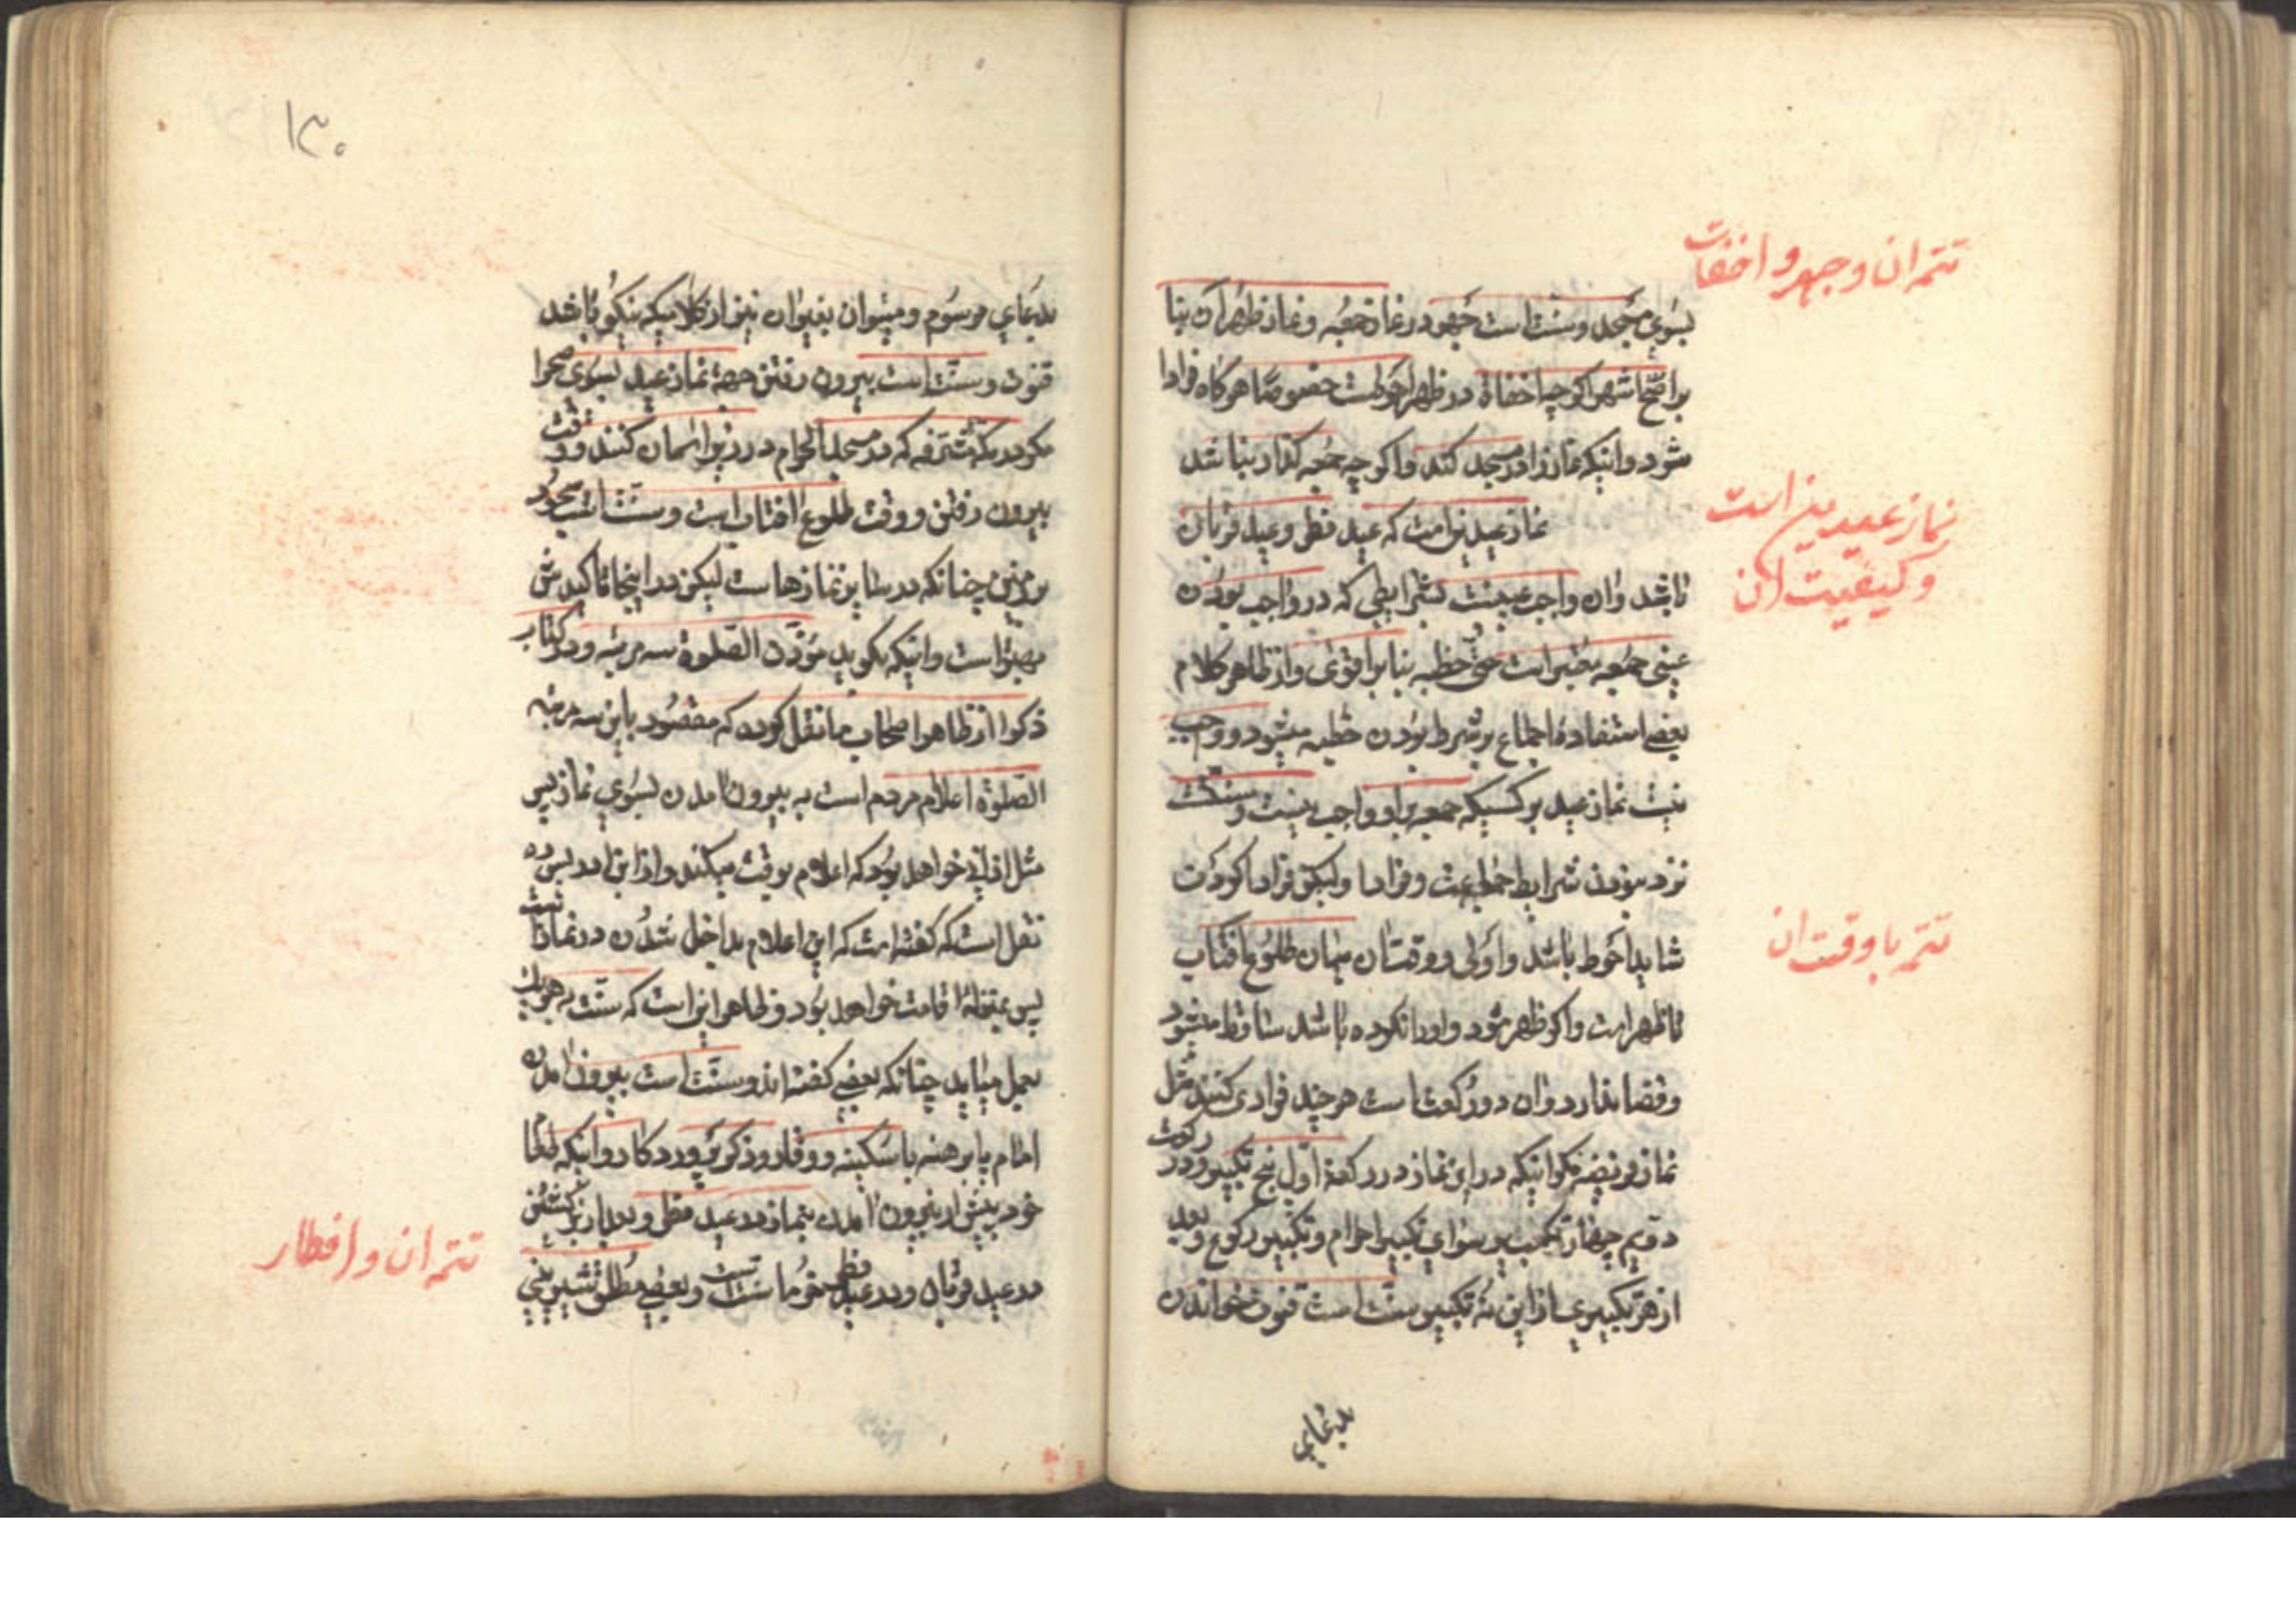 تتمه ان و جهر و اخفات
بسوی مسجد و سنت است جهر در نماز جمعه و نماز ظهر آن بنا
بر اصح اشهر اگر چه اخفاة در ظهر احوطست خصوصا هر گاه فرادا
شود و اینکه نماز را در مسجد کند و اگر چه جمعه گذار نباشد
نماز عیدین است که عید فطر و عید قربان
نماز عیدین است
و کیفیت ان
باشد و ان واجب عینست بشرایطی که در واجب بودن
عینی جمعه معتبر است حتی خطبه بنا بر اقوی و از ظاهر کلام
بعضی استفاده اجماع بر شرط بودن خطبه میشود و واجب
نیست نماز عید بر کسیکه جمعه بر او واجب نیست و سنتست
نزد نبودن شرایط جماعت و فرادا و لیکن فرادا کردن
تتمه با وقت ان
شاید احوط باشد و اولی و وقت آن میان طلوع آفتاب
تا ظهر است و اگر ظهر شود و او را نکرده باشد ساقط میشود
و قضا ندارد و ان دو رکعت است هر چند فرادی کنند مثل
نماز فریضه مگر اینکه در این نماز در رکعة اول پنج تکبیر و در رکعت
دویم چهار تکبیر سوای تکبیر احرام و تکبیر رکوع و بعد
از هر تکبیری از این نه تکبیر سنت است قنوت خواندن
بدعای
۱۳۰
بدعای مرسوم و میتوان بغیر ان نیز از کلامیکه نیکو باشد
قنوت و سنت است بیرون رفتن جهة نماز عید بسوی صحرا
مگر در مکه مشرفه که در مسجد الحرام در زیر اسمان کنند و وقت
بیرون رفتن و وقت طلوع افتاب است و سنت است سجود
بر زمین چنانکه در سایر نمازها است لیکن در اینجا تاکیدش
بیشتر است و اینکه بگوید مؤذن الصلوة سه مرتبه و در کتاب
ذکرا از ظاهر اصحاب ما نقل کرده که مقصود باین سه مرتبه
الصلوة اعلام مردم است به بیرون آمدن بسوی نماز پس
مثل اذانی خواهد بود که اعلام بوقت میکند و از ابن ادریس ره
نقل است که گفته است که این اعلام بداخل شدن در نماز است
پس بمنزله اقامت خواهد بود و ظاهر این است که سنت به هر یک
بعمل میاید چنانکه بعضی گفته اند و سنت است بیرون آمدن
امام پا برهنه با سکینه و وقار و ذکر پروردگار و اینکه طعام
خورد پیش از بیرون آمدن بنماز در عید فطر و بعد از برگشتن
تتمه ان و افطار
در عید قربان و در عید فطر خرما سنت است و بعضی مطلق شیرینی